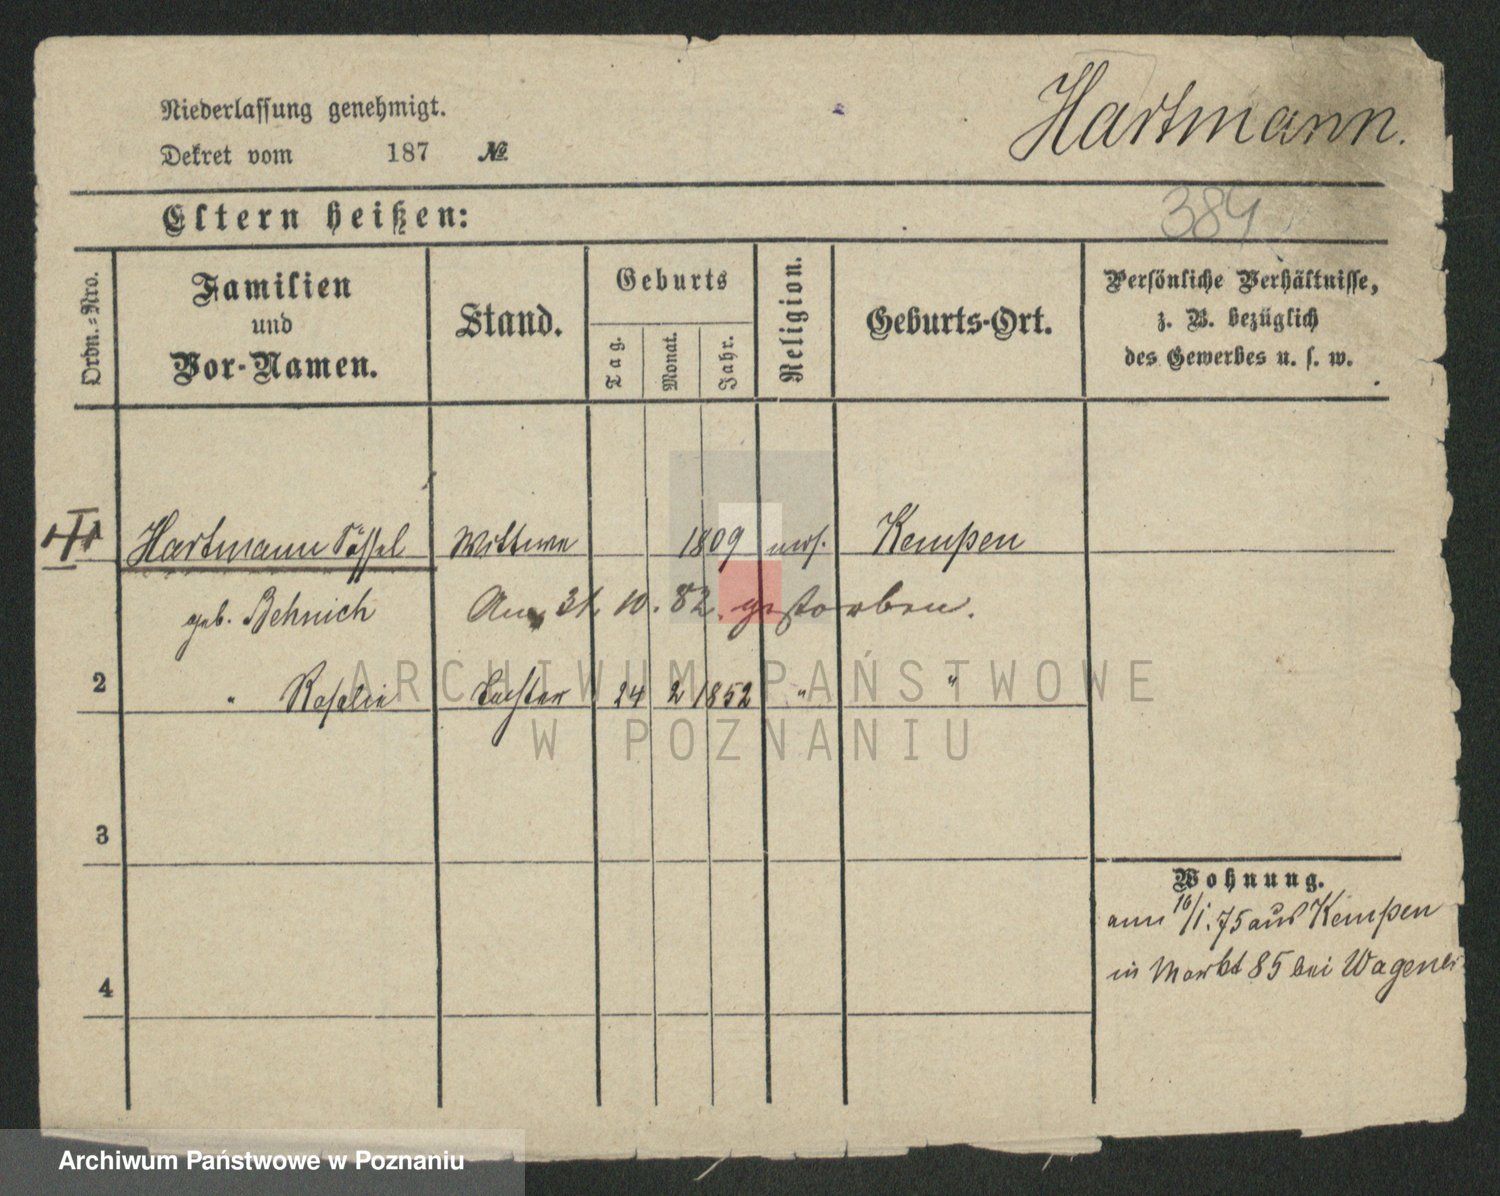 Niederlassung genehmigt.
Dekret vom 187 №
Hartmann.
384
Eltern heißen:
Ordn.-Nro.
Familien
und
Vor-Namen.
Stand.
Geburts
Tag.
Monat.
Jahr.
Religion.
Geburts-Ort.
Persönliche Verhältnisse,
z. B. bezüglich
des Gewerbes u. s. w.
Hartmann Wittwe 1809 mos. Kempen
geb. Behnich Am 31. 10. 82. gestorben.
2 " Rosalie Tochter 24 2 1852 " "
3
4
Wohnung.
16/1. 75 aus Kempen
in Markt 85 bei Wagener
ARCHIWUM PAŃSTWOWE
W POZNANIU
Archiwum Państwowe w Poznaniu